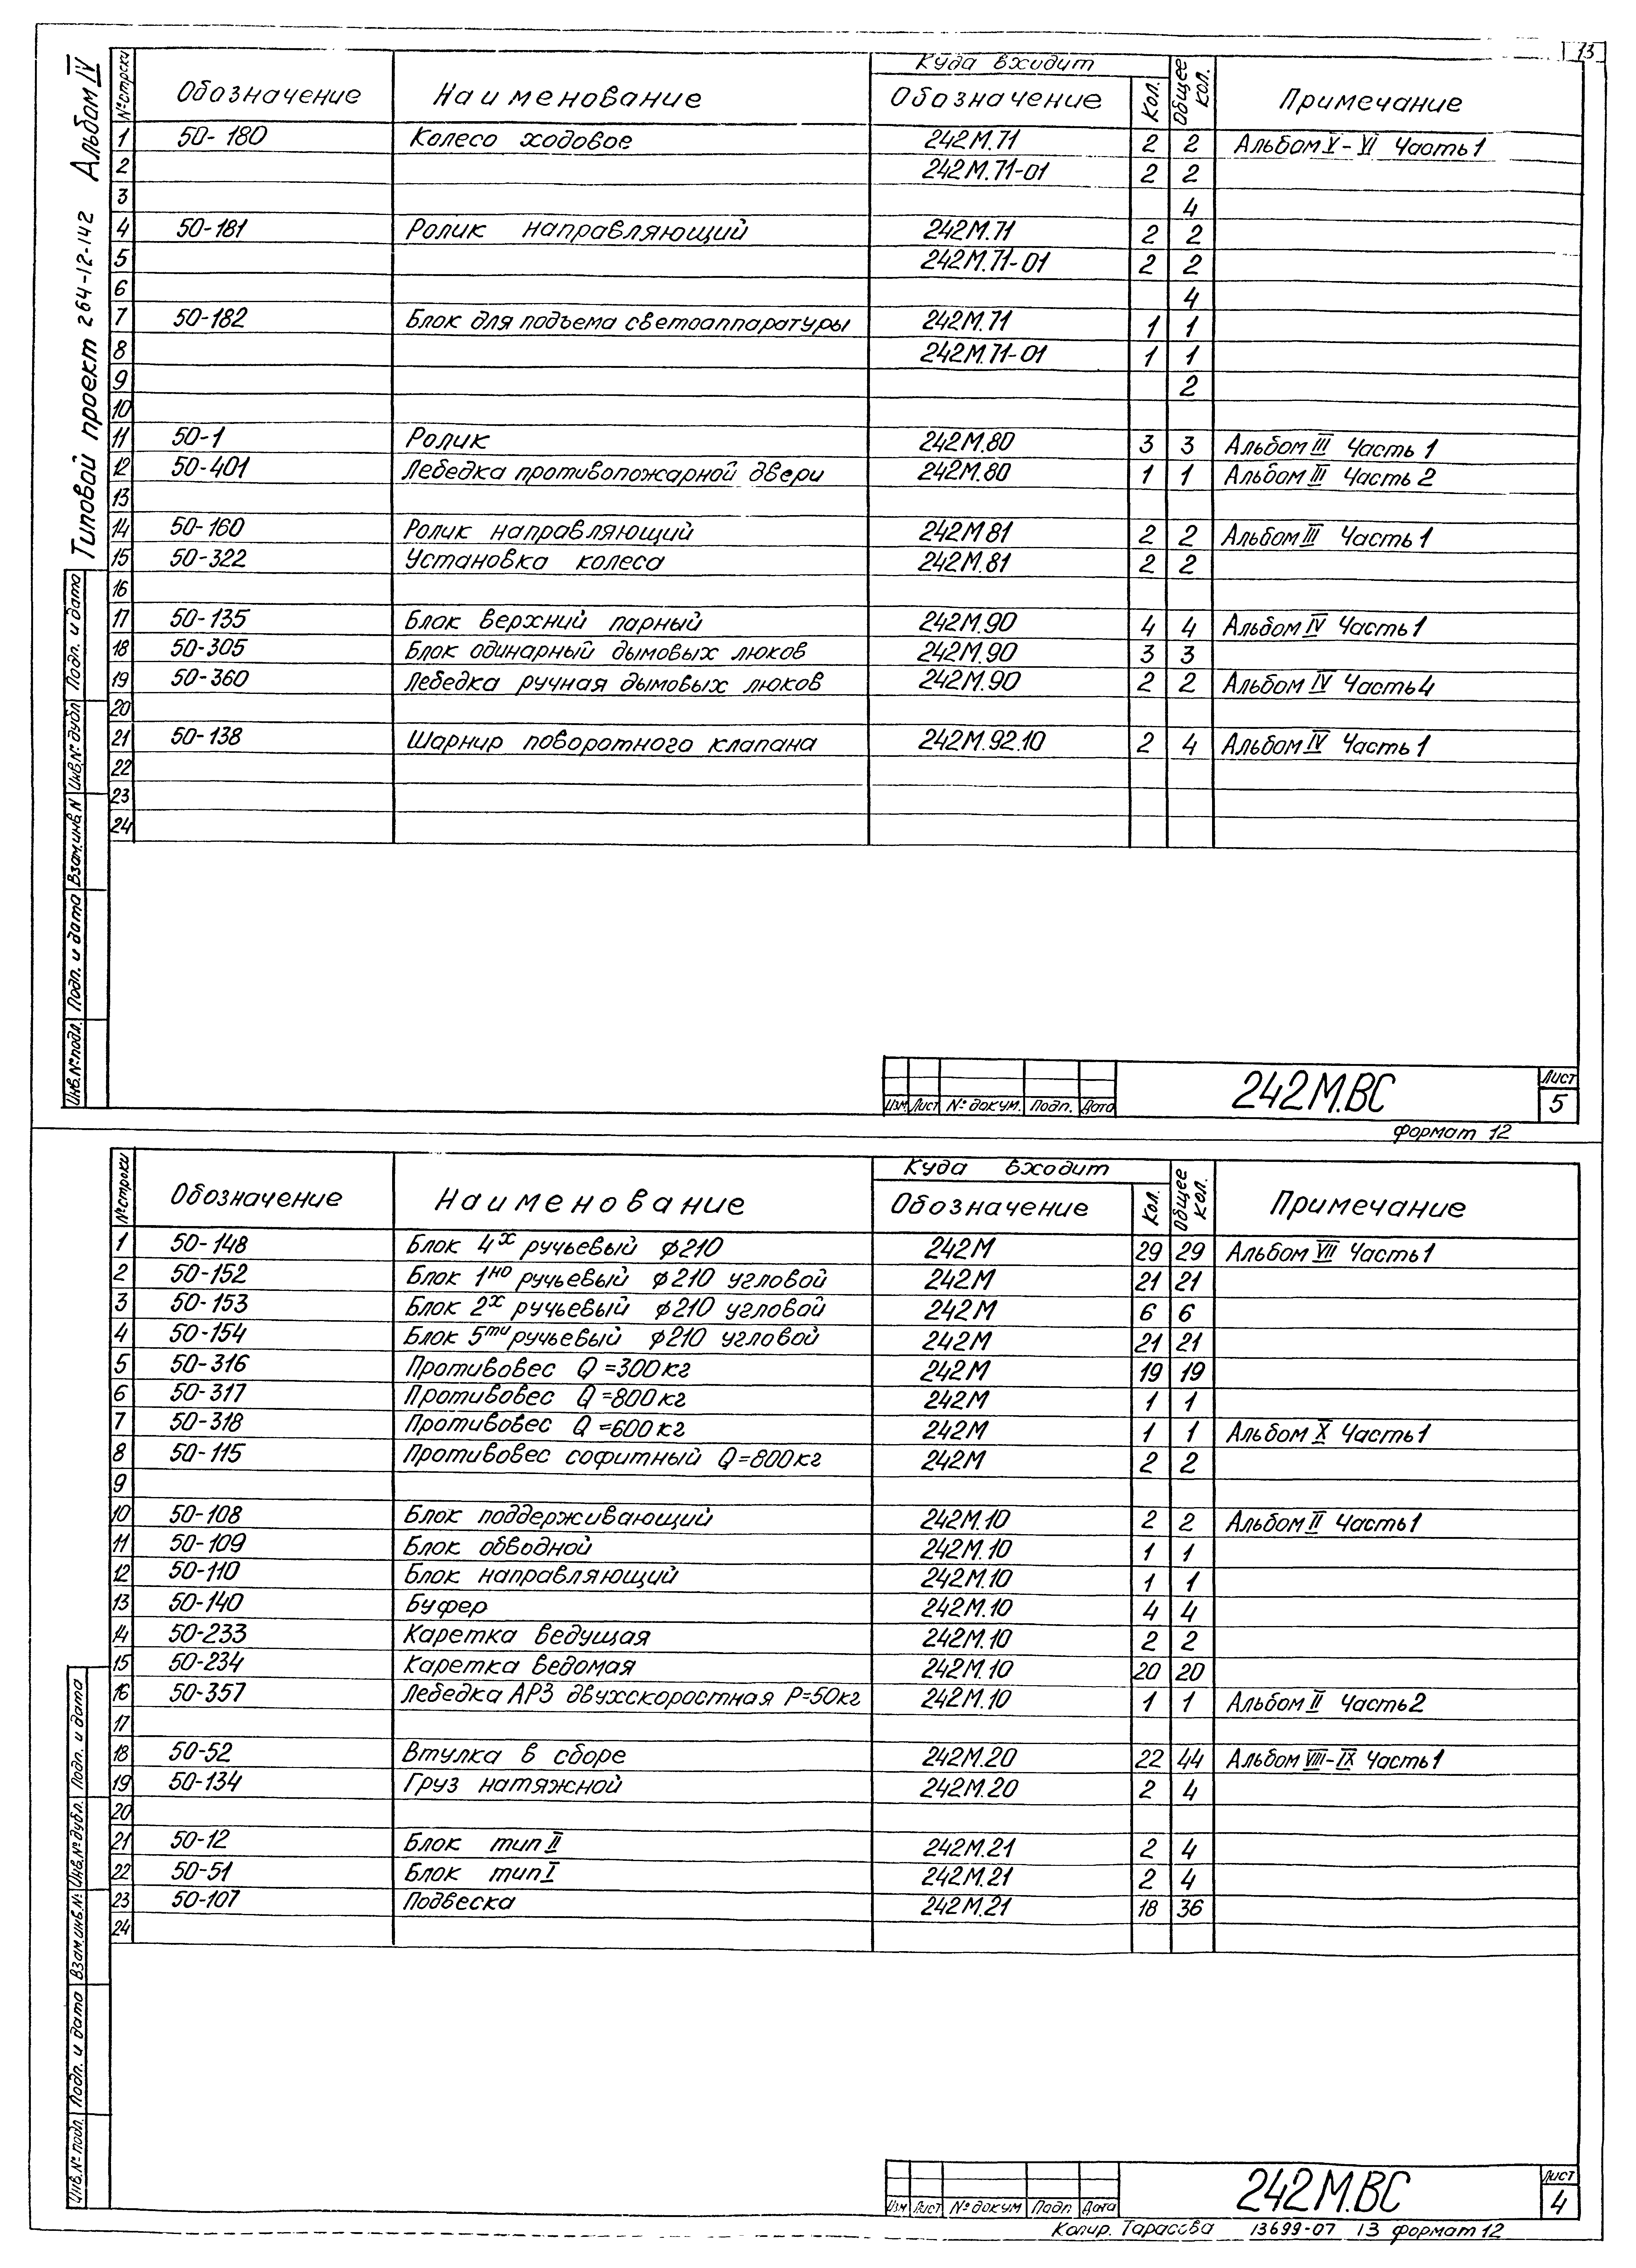 13
Типовой проект 264-12-142 Альбом IV
№ строки Обозначение Наименование Куда входит Обозначение Кол. Общее кол. Примечание
1 50-180 Колесо ходовое 242М.71 2 2 Альбом V-VI Часть 1
2 242М.71-01 2 2
3 4
4 50-181 Ролик направляющий 242М.71 2 2
5 242М.71-01 2 2
6 4
7 50-182 Блок для подъема светоаппаратуры 242М.71 1 1
8 242М.71-01 1 1
9 2
10
11 50-1 Ролик 242М.80 3 3 Альбом III Часть 1
12 50-401 Лебедка противопожарной двери 242М.80 1 1 Альбом III Часть 2
13
14 50-160 Ролик направляющий 242М81 2 2 Альбом III Часть 1
15 50-322 Установка колеса 242М.81 2 2
16
17 50-135 Блок верхний парный 242М.90 4 4 Альбом IV Часть 1
18 50-305 Блок одинарный дымовых люков 242М.90 3 3
19 50-360 Лебедка ручная дымовых люков 242М.90 2 2 Альбом IV Часть 4
20
21 50-138 Шарнир поворотного клапана 242М.92.10 2 4 Альбом IV Часть 1
22
23
24
Инв.№подл. Подп. и дата Взам.инв.N Инв.№дубл Подп. и дата
Изм Лист № докум. Подп. Дата 242М.ВС Лист 5
формат 12
№ строки Обозначение Наименование Куда входит Обозначение Кол. Общее кол. Примечание
1 50-148 Блок 4х ручьевый ф210 242М 29 29 Альбом VII Часть 1
2 50-152 Блок 1но ручьевый ф210 угловой 242М 21 21
3 50-153 Блок 2х ручьевый ф210 угловой 242М 6 6
4 50-154 Блок 5ти ручьевый ф210 угловой 242М 21 21
5 50-316 Противовес Q=300кг 242М 19 19
6 50-317 Противовес Q=800кг 242М 1 1
7 50-318 Противовес Q=600кг 242М 1 1 Альбом X Часть 1
8 50-115 Противовес софитный Q=800кг 242М 2 2
9
10 50-108 Блок поддерживающий 242М.10 2 2 Альбом II Часть 1
11 50-109 Блок обводной 242М.10 1 1
12 50-110 Блок направляющий 242М.10 1 1
13 50-140 Буфер 242М.10 4 4
14 50-233 Каретка ведущая 242М.10 2 2
15 50-234 Каретка ведомая 242М.10 20 20
16 50-357 Лебедка АРЗ двухскоростная Р=50кг 242М.10 1 1 Альбом II Часть 2
17
18 50-52 Втулка в сборе 242М.20 22 44 Альбом VIII-IX Часть 1
19 50-134 Груз натяжной 242М.20 2 4
20
21 50-12 Блок тип II 242М.21 2 4
22 50-51 Блок тип I 242М.21 2 4
23 50-107 Подвеска 242М.21 18 36
24
Инв.№ подл. Подп. и дата Взам.инв.№ Инв.№дубл. Подп. и дата
Изм Лист № докум Подп Дата 242М.ВС Лист 4
Копир. Тарасова 13699-07 13 формат 12